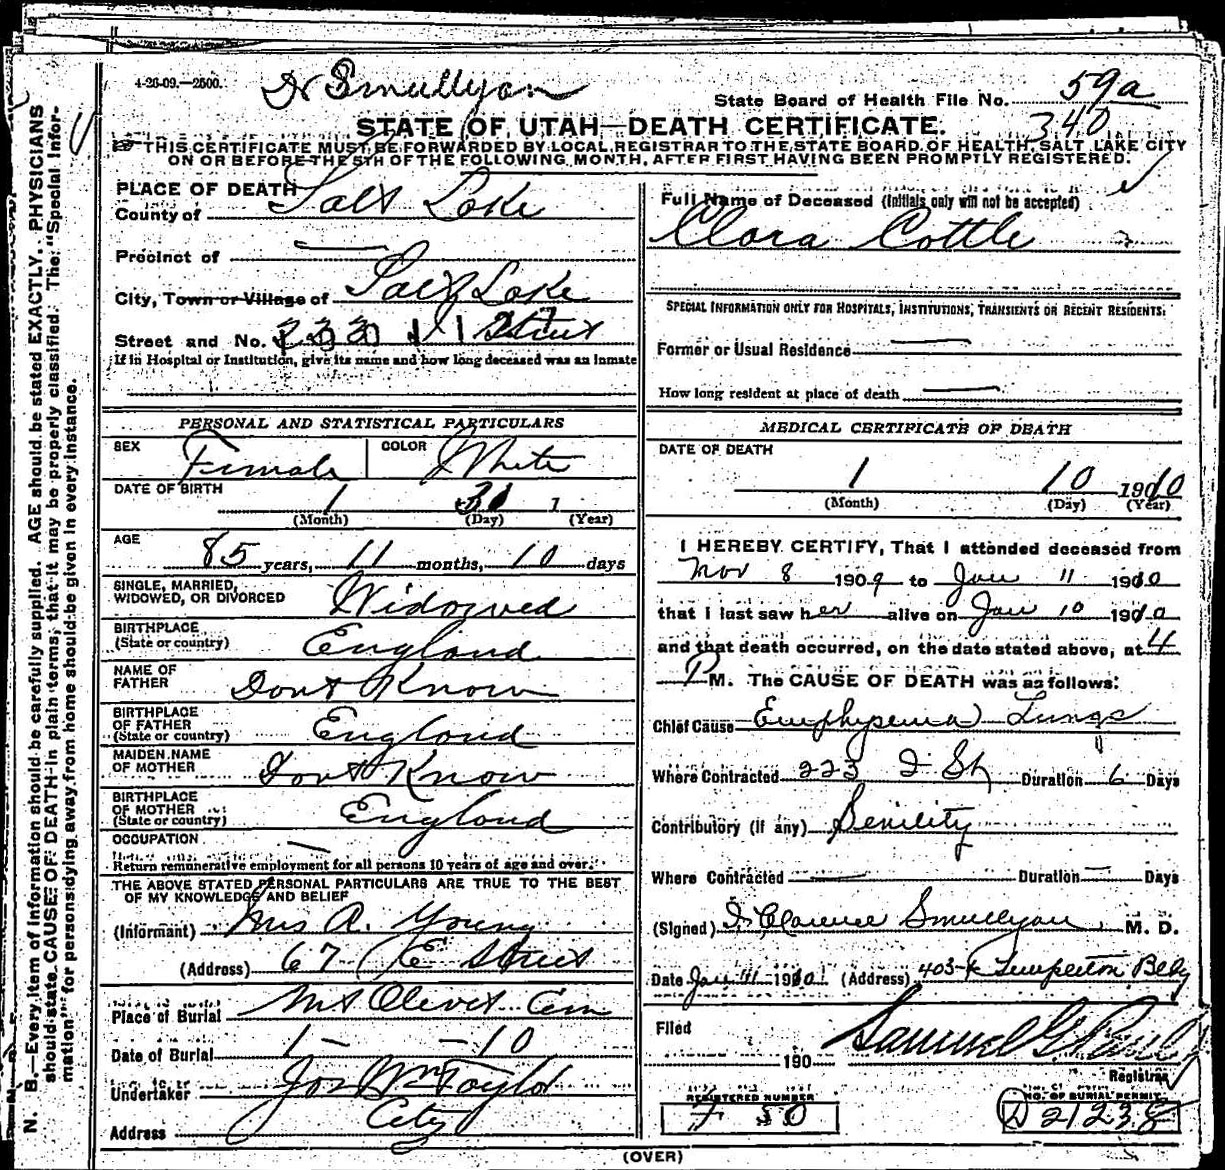 4-26-09.—2500.
Dr Smullyan
State Board of Health File No. 59a
340
STATE OF UTAH—DEATH CERTIFICATE.
THIS CERTIFICATE MUST BE FORWARDED BY LOCAL REGISTRAR TO THE STATE BOARD OF HEALTH, SALT LAKE CITY
ON OR BEFORE THE 5TH OF THE FOLLOWING MONTH, AFTER FIRST HAVING BEEN PROMPTLY REGISTERED.
N. B.—Every item of information should be carefully supplied. AGE should be stated EXACTLY. PHYSICIANS
should state CAUSE OF DEATH in plain terms, that it may be properly classified. The "Special Infor-
mation" for persons dying away from home should be given in every instance.
PLACE OF DEATH
County of Salt Lake
Precinct of —
City, Town or Village of Salt Lake
Street and No. Street
If in Hospital or Institution, give its name and how long deceased was an inmate
PERSONAL AND STATISTICAL PARTICULARS
SEX Female COLOR White
DATE OF BIRTH 1
(Month) (Day) (Year)
AGE 85 years, 11 months, 10 days
SINGLE, MARRIED,
WIDOWED, OR DIVORCED Widowed
BIRTHPLACE
(State or country) England
NAME OF
FATHER Dont Know
BIRTHPLACE
OF FATHER
(State or country) England
MAIDEN NAME
OF MOTHER Dont Know
BIRTHPLACE
OF MOTHER
(State or country) England
OCCUPATION —
Return remunerative employment for all persons 10 years of age and over.
THE ABOVE STATED PERSONAL PARTICULARS ARE TRUE TO THE BEST
OF MY KNOWLEDGE AND BELIEF
(Informant) Mrs A. Young
(Address) 67 E Street
Place of Burial Mt Olivet Cem
Date of Burial 1 – – 10
Undertaker Jos Wm Taylor
Address City
Full Name of Deceased (Initials only will not be accepted)
Clara Cottle
SPECIAL INFORMATION ONLY FOR HOSPITALS, INSTITUTIONS, TRANSIENTS OR RECENT RESIDENTS:
Former or Usual Residence —
How long resident at place of death —
MEDICAL CERTIFICATE OF DEATH
DATE OF DEATH
1 10 1910
(Month) (Day) (Year)
I HEREBY CERTIFY, That I attended deceased from
Nov 8 1909 to Jan 11 1910
that I last saw her alive on Jan 10 1910
and that death occurred, on the date stated above, at 4
P M. The CAUSE OF DEATH was as follows:
Chief Cause Emphysema Lungs
Where Contracted 223 I St Duration 6 Days
Contributory (if any) Senility
Where Contracted — Duration — Days
(Signed) Clarence Smullyan M. D.
Date Jan 11 1910 (Address) 403-4 Templeton Bldg
Filed
190 Samuel G. Paul
Registrar
REGISTERED NUMBER
50
NO. OF BURIAL PERMIT
D 21238
(OVER)